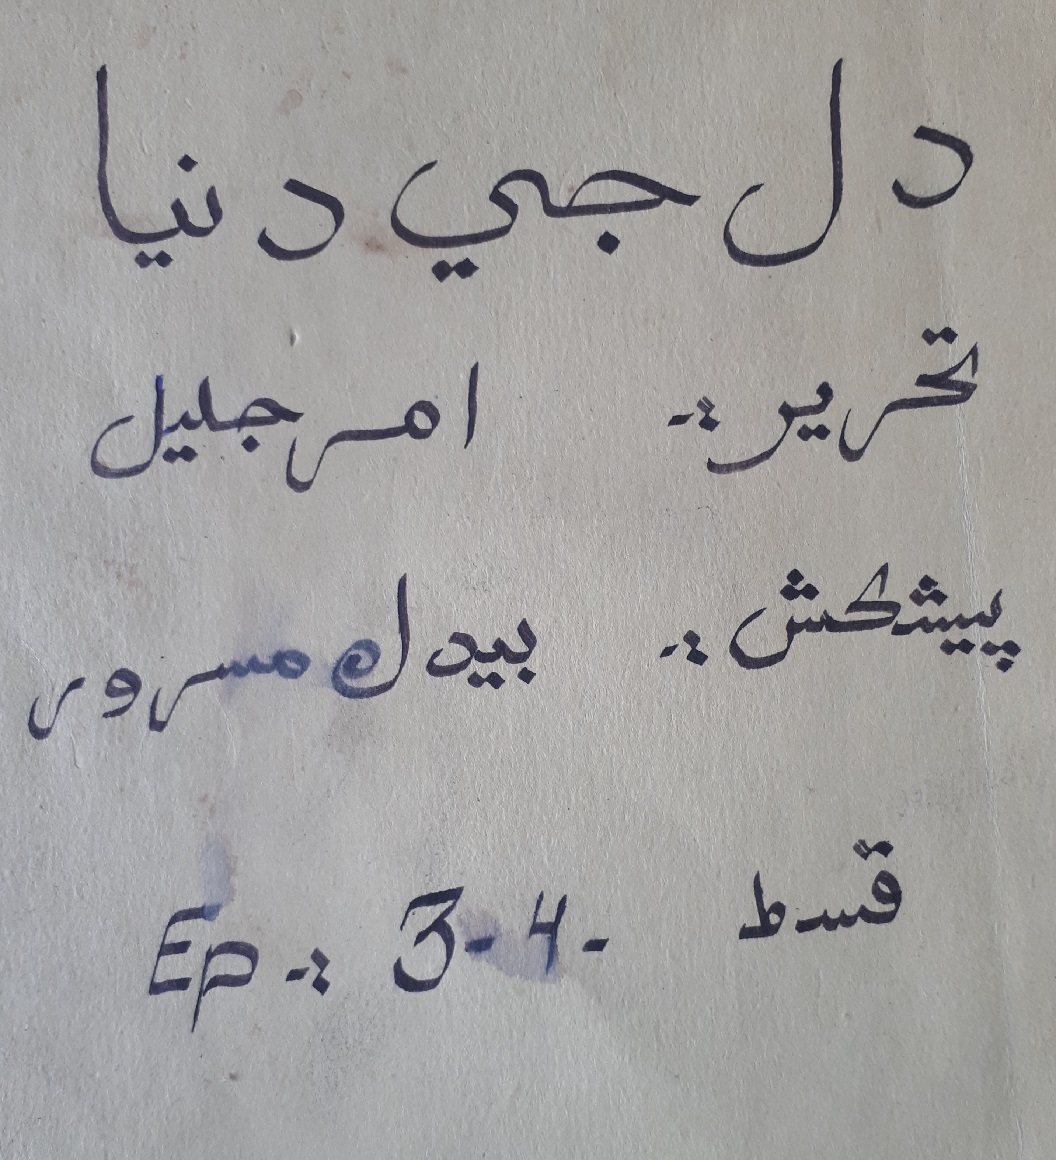 دل جي دنيا
تحرير :- امر جليل
پيشڪش :- بيدل مسرور
قسط Ep :- 3-4-